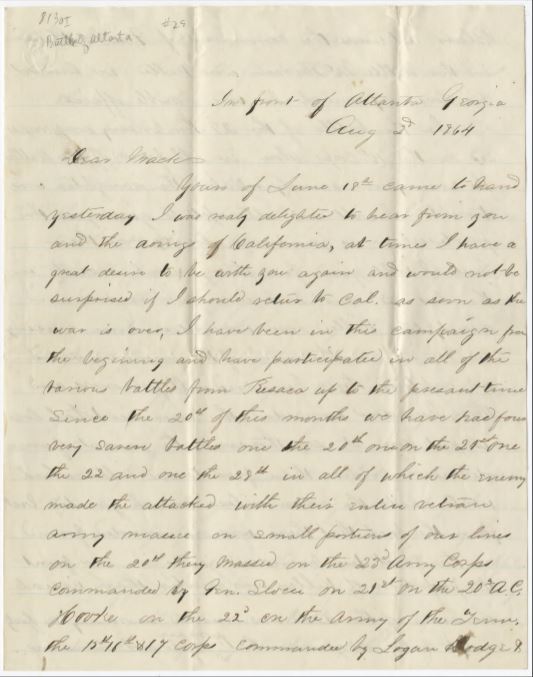 8130I
#29
Battle of Atlanta
In front of Atlanta Georgia
Aug 3d 1864
Dear Mack
Yours of June 18th came to hand
yesterday I was realy delighted to hear from you
and the doings of California, at times I have a
great desire to be with you again and would not be
surprised if I should return to Cal. as soon as the
war is over, I have been in this campaign from
the beginning and have participated in all of the
various battles from Resaca up to the present time
Since the 20th of this months we have had four
very severe battles one the 20th one on the 21st one
the 22 and one the 28th in all of which the enemy
made the attacked with their entire vetran
army massie on small portions of our lines
on the 20th they massed on the 23d Army Corps
commanded by Gen. on 21st on the 20th A.C.
on the 22d on the Army of the Tenn.
the 15th 16th & 17 corps commanded by Logan Dodge &